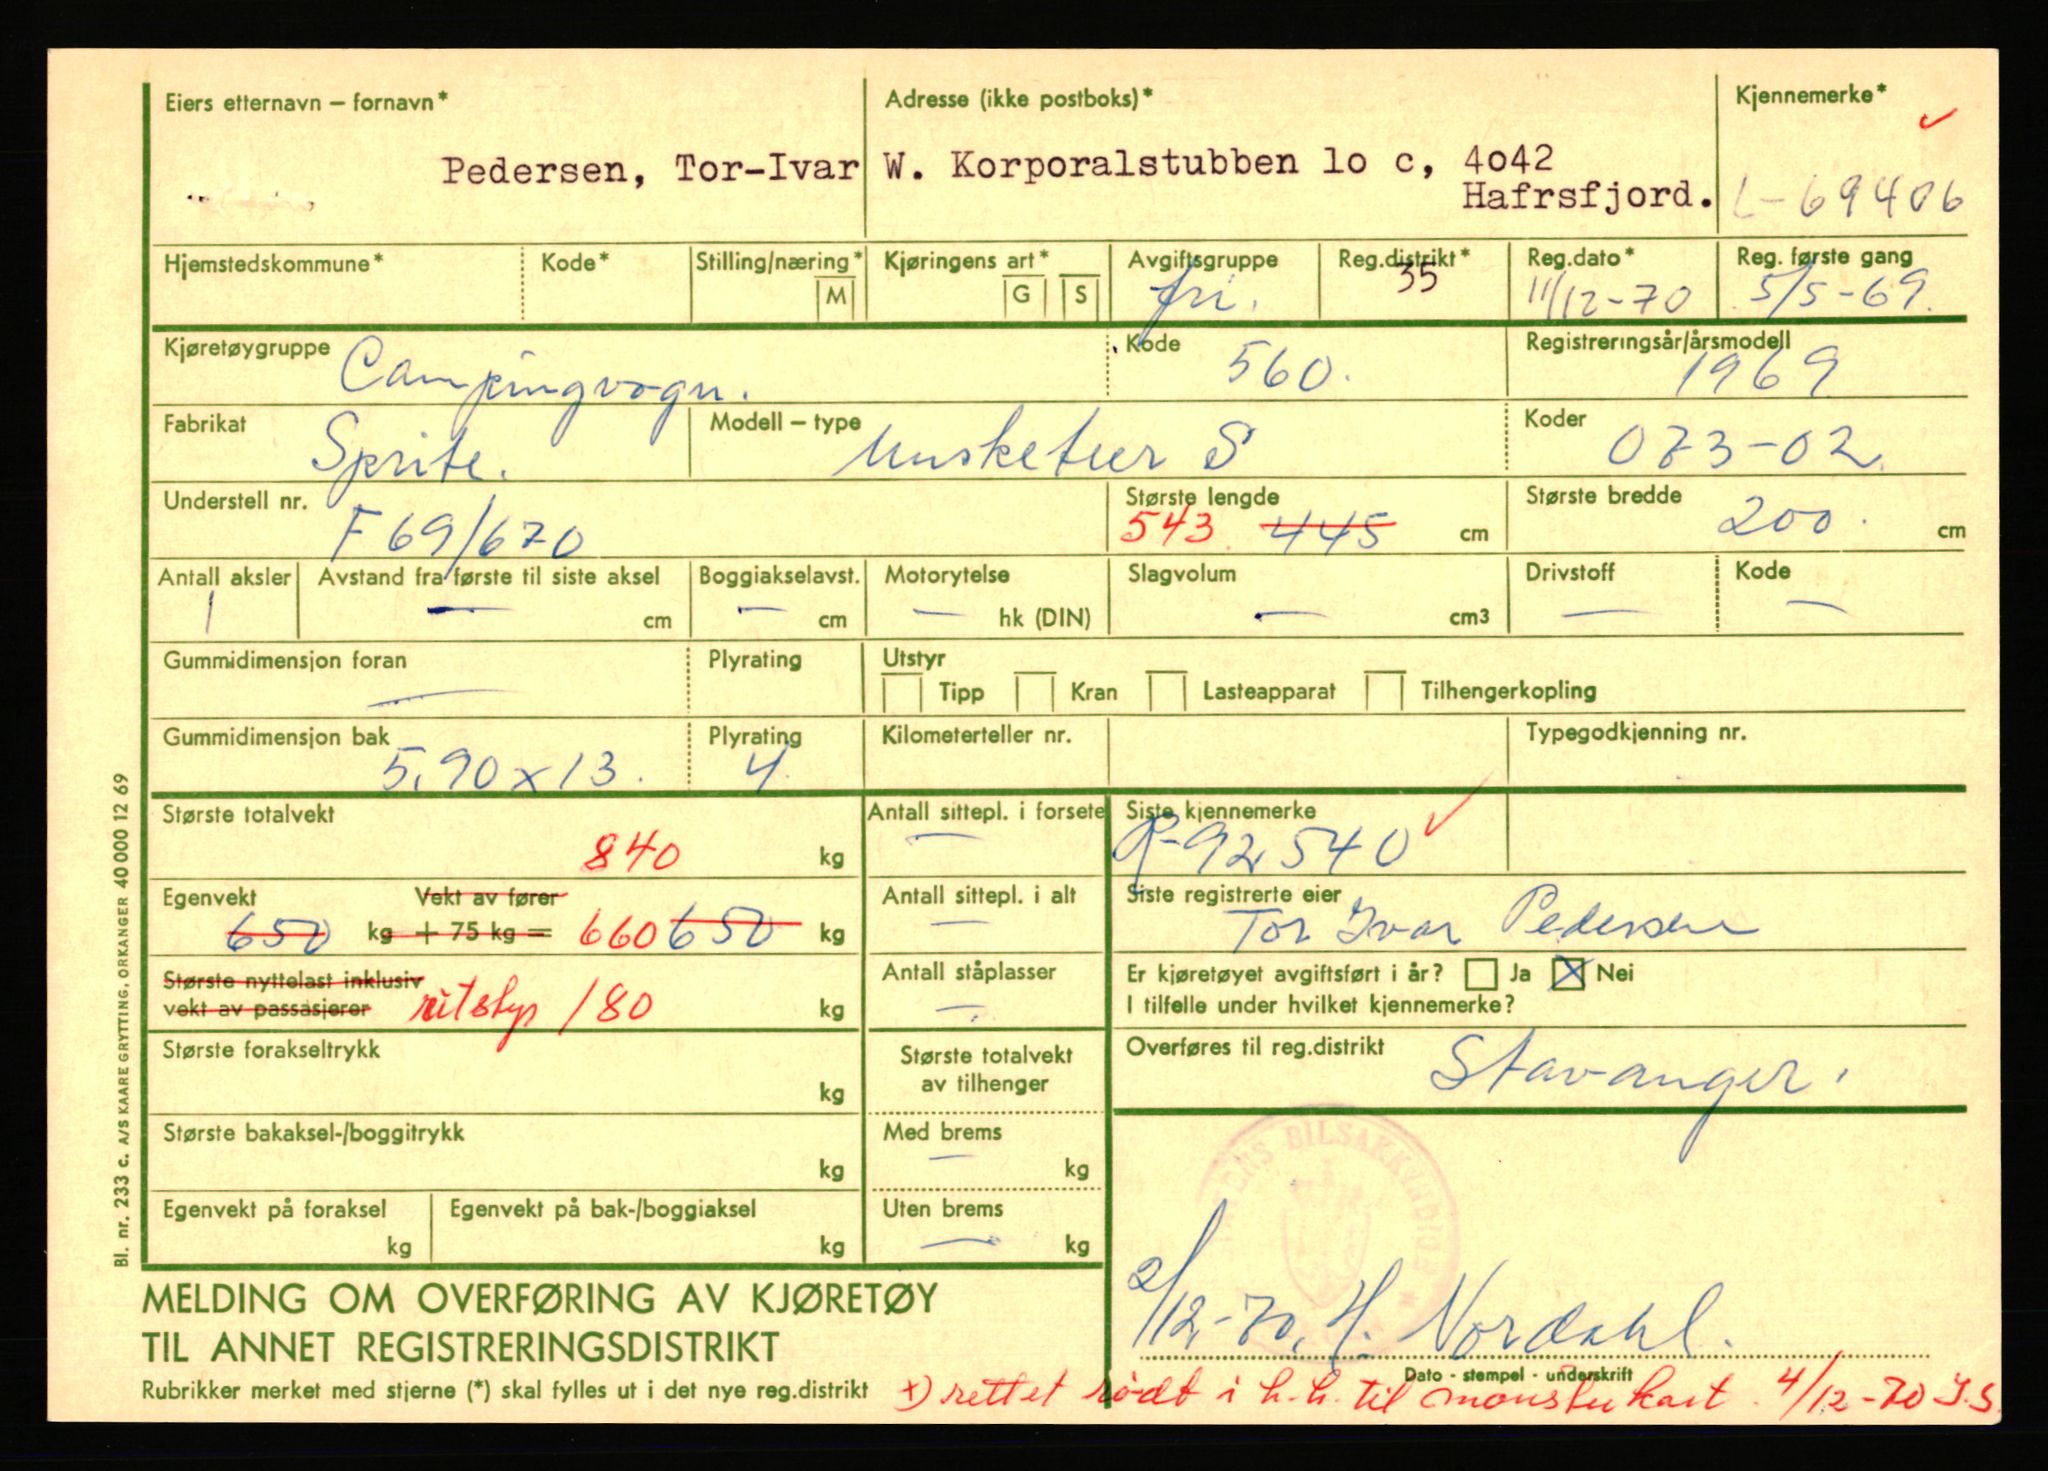 Eiers etternavn – fornavn*
Adresse (ikke postboks)*
Kjennemerke*
Pedersen, Tor-Ivar
W. Korporalstubben lo c, 4o42
Hafrsfjord.
L-69406
Hjemstedskommune*
Kode*
Stilling/næring*
M
Kjøringens art*
G
S
Avgiftsgruppe
fri.
Reg.distrikt*
35
Reg.dato*
11/12-70
Reg. første gang
5/5-69.
Kjøretøygruppe
Campingvogn.
Kode
560.
Registreringsår/årsmodell
1969
Fabrikat
Sprite.
Modell – type
Musketeer S
Koder
073-02.
Understell nr.
F 69/670
Største lengde
543 445 cm
Største bredde
200. cm
Antall aksler
1
Avstand fra første til siste aksel
— cm
Boggiakselavst.
— cm
Motorytelse
— hk (DIN)
Slagvolum
— cm3
Drivstoff
—
Kode
—
Gummidimensjon foran
—
Plyrating
Utstyr
Tipp
Kran
Lasteapparat
Tilhengerkopling
Gummidimensjon bak
5,90 x 13.
Plyrating
4.
Kilometerteller nr.
Typegodkjenning nr.
Største totalvekt
840 kg
Antall sittepl. i forsete
—
Siste kjennemerke
R-92540
Egenvekt
Vekt av fører
650 kg + 75 kg = 660 650 kg
Antall sittepl. i alt
—
Siste registrerte eier
Tor Ivar Pedersen
Største nyttelast inklusiv
vekt av passasjerer
180 kg
Antall ståplasser
—
Er kjøretøyet avgiftsført i år? Ja X Nei
I tilfelle under hvilket kjennemerke?
Største forakseltrykk
kg
Største totalvekt
av tilhenger
Overføres til reg.distrikt
Stavanger.
Største bakaksel-/boggitrykk
kg
Med brems
— kg
Egenvekt på foraksel
kg
Egenvekt på bak-/boggiaksel
kg
Uten brems
— kg
BILSAKKYNDIGE
2/12-70, H. Nordahl.
Dato - stempel - underskrift
MELDING OM OVERFØRING AV KJØRETØY
TIL ANNET REGISTRERINGSDISTRIKT
Rubrikker merket med stjerne (*) skal fylles ut i det nye reg.distrikt
x) rettet rødt i h.h. til mønsterkart. 4/12-70 I.S.
Bl. nr. 233 c. A/S KAARE GRYTTING, ORKANGER 40 000 12 69